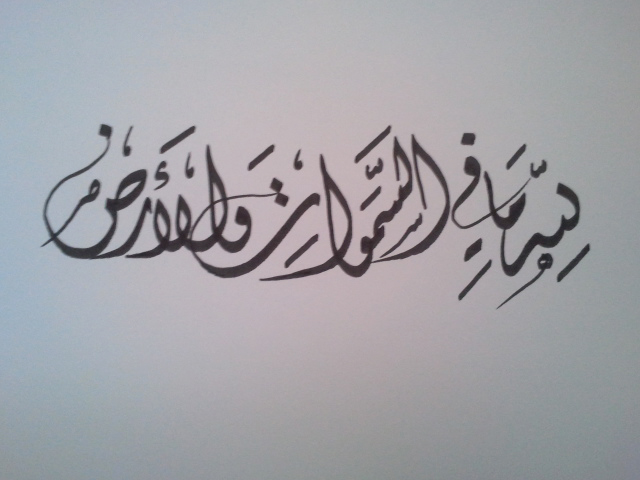 لِلَّهِ مَا فِي السَّمَوَاتِ وَالْأَرْضِ